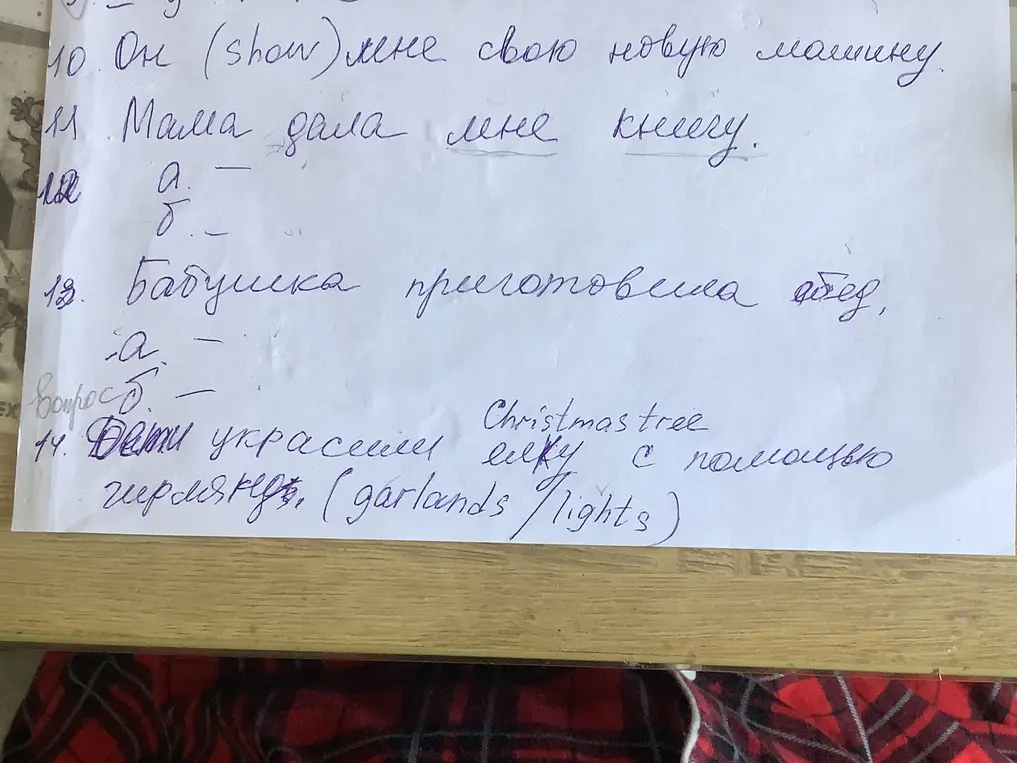 10. Он (show) мне свою новую машину.
11 Мама дала мне книгу.
12 а. —
б. —
13. Бабушка приготовила обед.
а. —
Вопрос б. —
Christmas tree
14. Дети украсили елку с помощью
гирлянд. (garlands / lights)